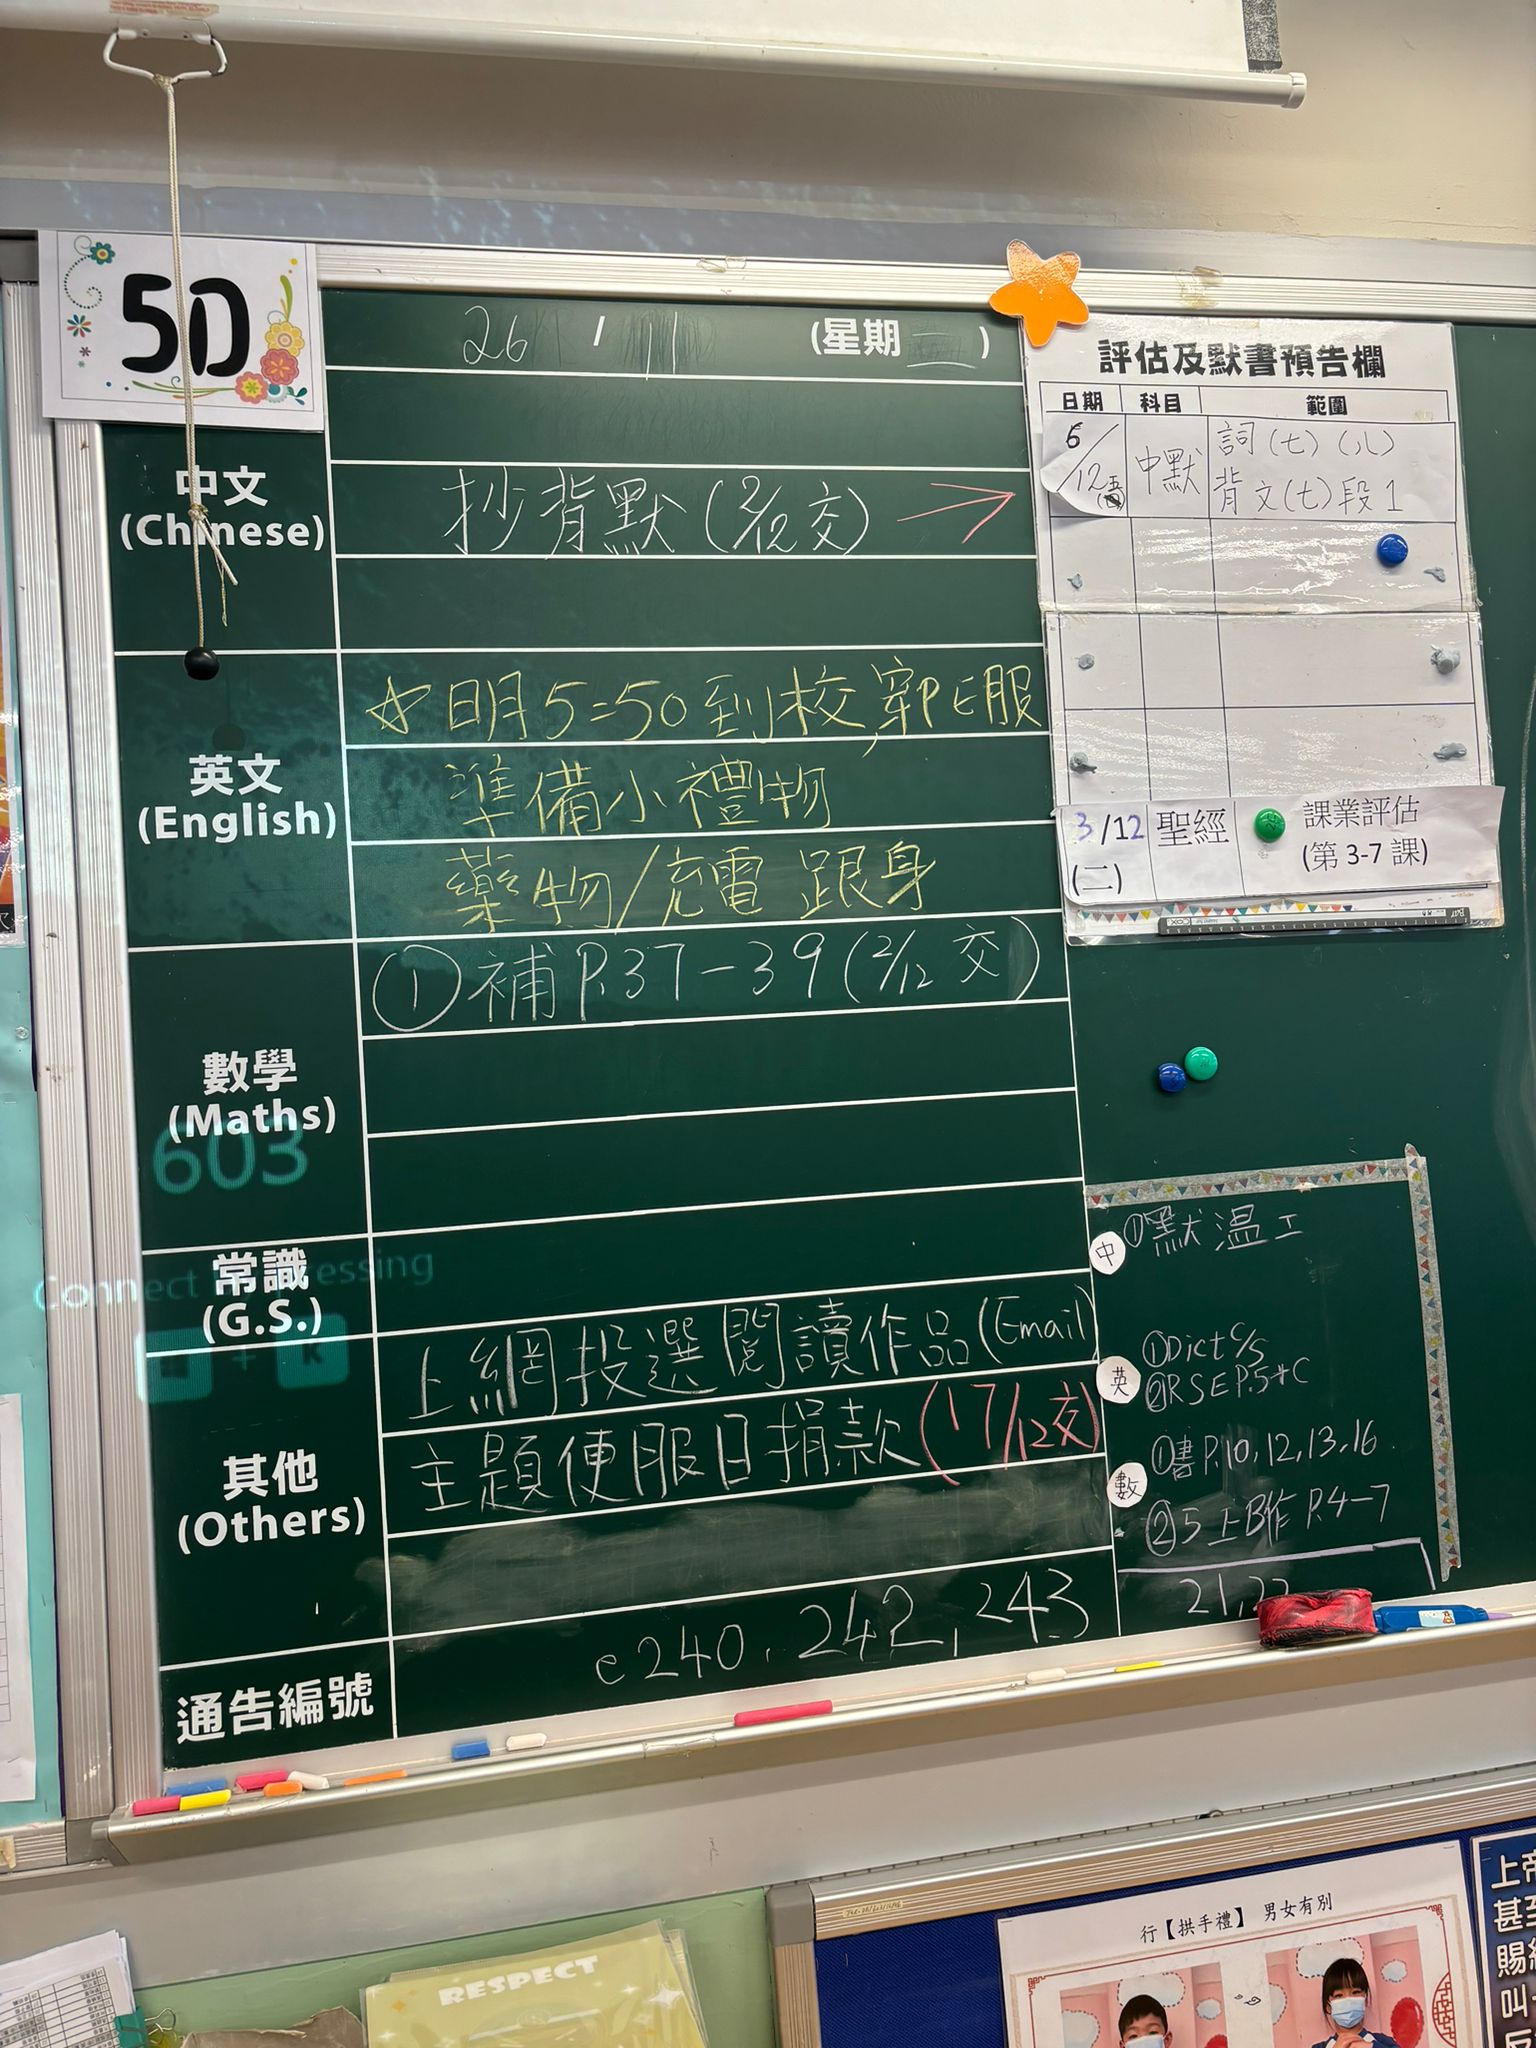 5D
26 / 11 (星期二)
中文
(Chinese)
抄背默(2/12交) →
英文
(English)
☆明5:50到校,穿PE服
準備小禮物
藥物/充電 跟身
數學
(Maths)
①補P.37-39(2/12交)
603
常識
(G.S.)
Connect by pressing
+ K
其他
(Others)
上網投選閱讀作品(Email)
主題便服日捐款(17/12交)
通告編號
e240, 242, 243
評估及默書預告欄
日期 科目 範圍
6/12 中默 詞(七)(八)
背文(七)段1
3/12 聖經 課業評估
(二) (第 3-7 課)
中 ①默溫工
英 ①Dict C/S
②RSE P.5+C
數 ①書P.10,12,13,16
②5上B作 P.4-7
21,22
RESPECT
行【拱手禮】 男女有別
上帝
甚至
賜給
叫